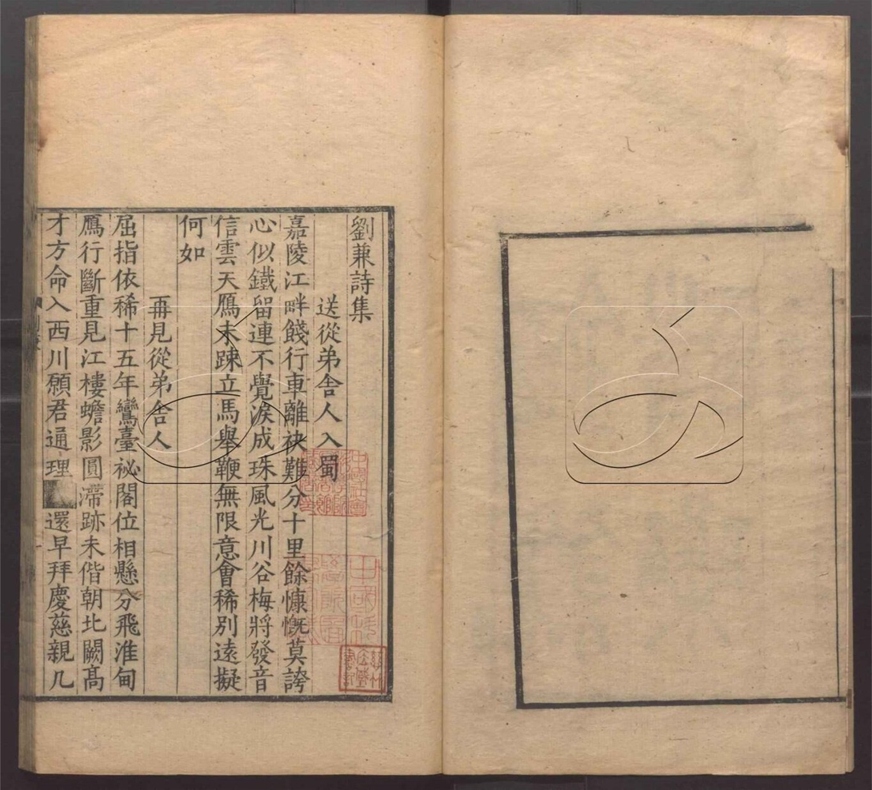 劉兼詩集
送從弟舍人入蜀
嘉陵江畔餞行車離袂難分十里餘慷慨莫誇
心似鐵留連不覺淚成珠風光川谷梅將發音
信雲天鴈未踈立馬舉鞭無限意會稀別遠擬
何如
再見從弟舍人
屈指依稀十五年鸞臺祕閣位相懸分飛淮甸
鴈行斷重見江樓蟾影圓滯跡未偕朝北闕髙
才方命入西川願君通理還早拜慶慈親几